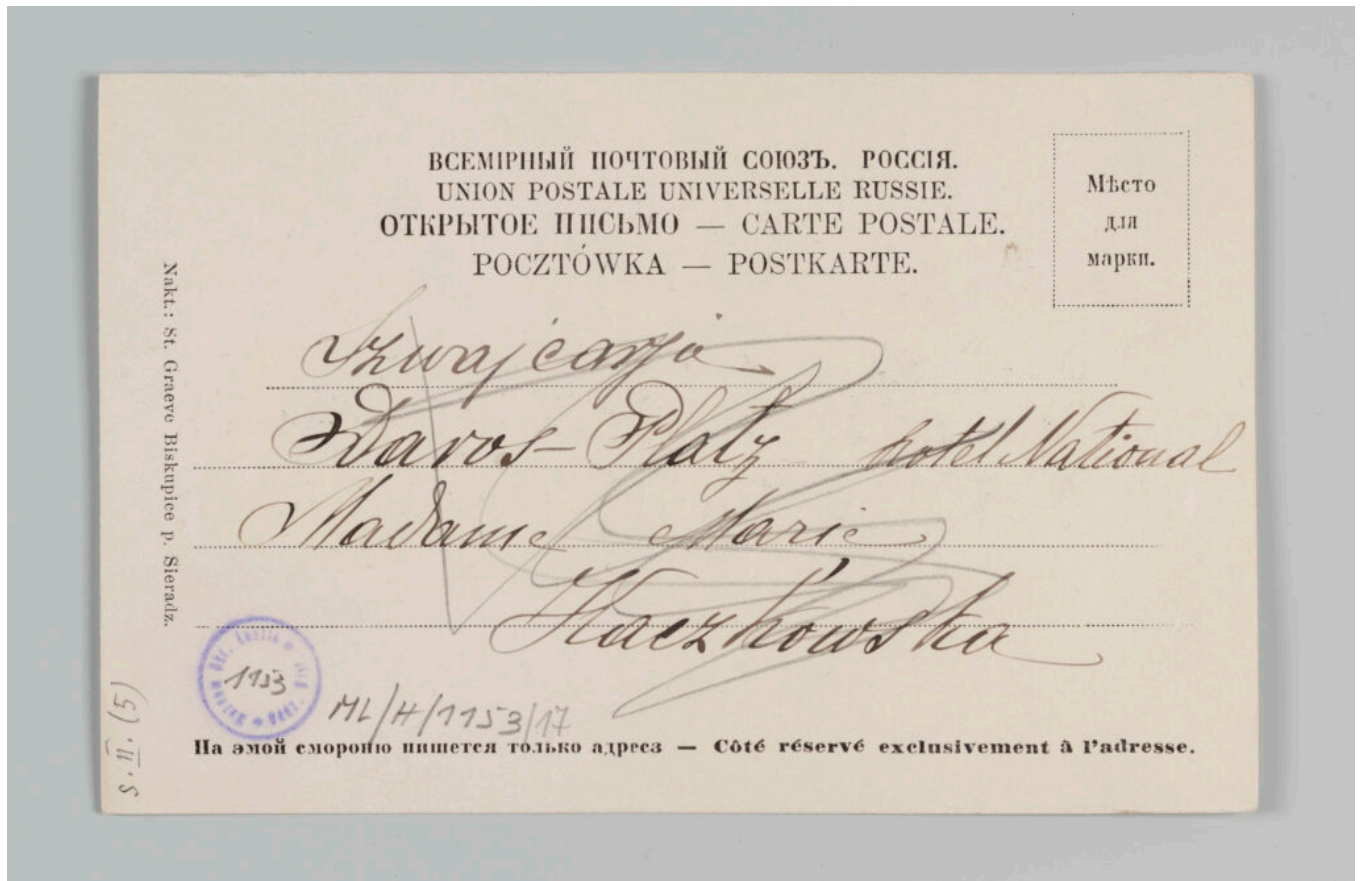 ВСЕМІРНЫЙ ПОЧТОВЫЙ СОЮЗЪ. РОССІЯ.
UNION POSTALE UNIVERSELLE RUSSIE.
ОТКРЫТОЕ ПИСЬМО — CARTE POSTALE.
POCZTÓWKA — POSTKARTE.
Мѣсто
для
марки.
Nakt.: St. Graeve Biskupice p. Sieradz.
Szwajcarja
Davos-Platz hotel National
Madame Marie
Kaczkowska
1153
ML/H/1153/17
S. II. (5)
На эмой смороню пишется только адресз — Côté réservé exclusivement à l'adresse.